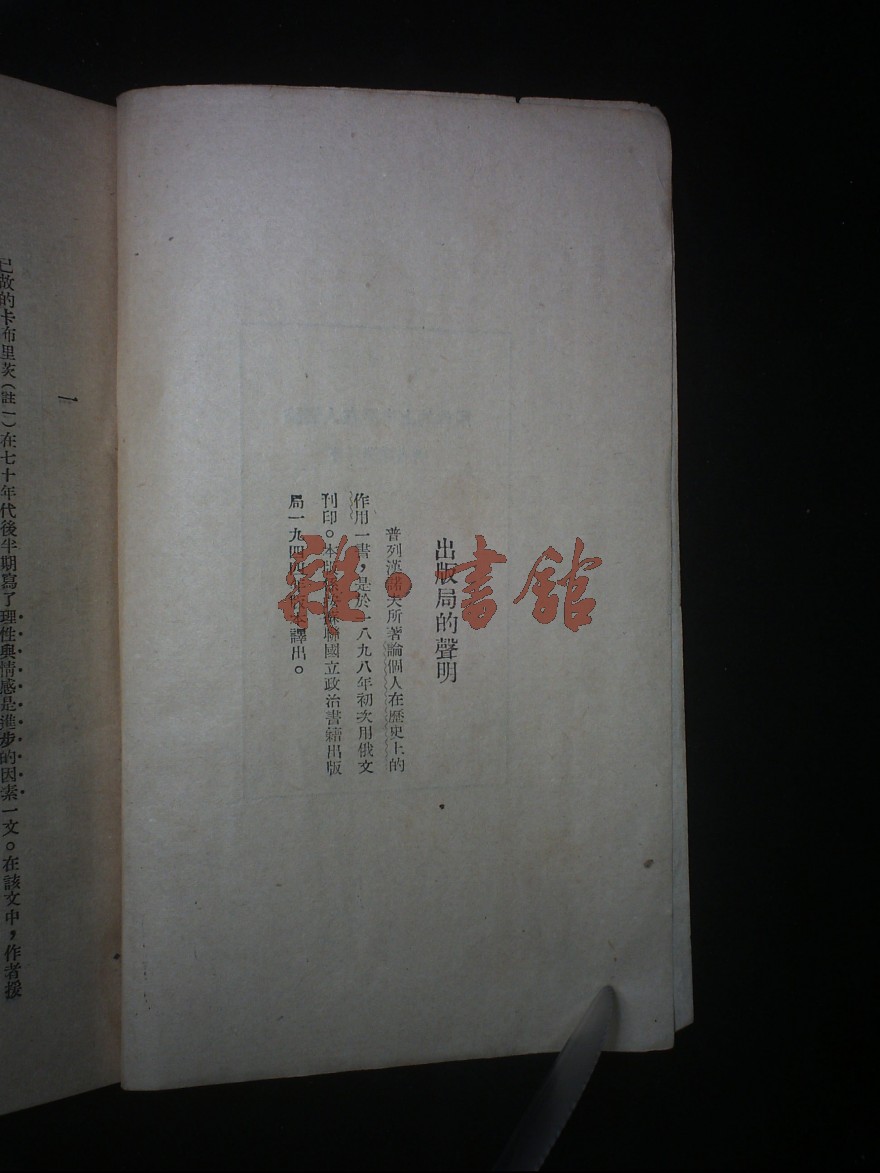 出版局的聲明
普列漢諾夫所著論個人在歷史上的
作用一書,是於一八九八年初次用俄文
刊印。本版係按蘇聯國立政治書籍出版
局一九四四年俄文本譯出。
一
已故的卡布里茨(註一)在七十年代後半期寫了理性與情感是進步的因素一文。在該文中,作者援
雜·書館